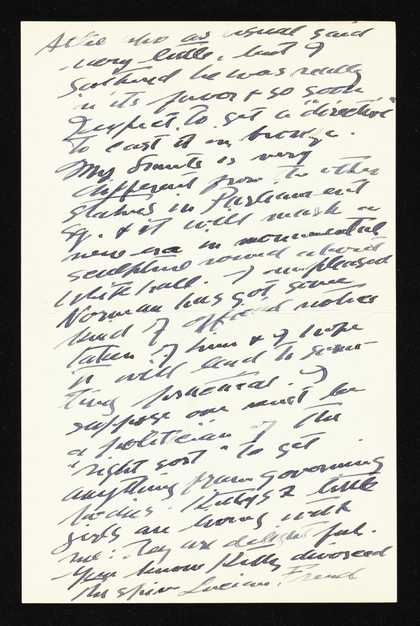 who as usual said
very little, but I
gathered he was really
in its favor & so soon
I expect to get a "directive"
to cast it in bronze.
My Smuts is very
different from the other
statues in Parliament
Sq. & it will mark a
new era in monumental
sculpture round about
Whitehall. I am pleased
Norman has got some
kind of official notice
taken of him & I hope
it will lead to some-
thing practical. I
suppose one must be
a politician of the
"right sort" to get
anything from governing
bodies. Kitty's 2 little
girls are living with
me: they are delightful.
You know Kitty divorced
the Lucian Freud